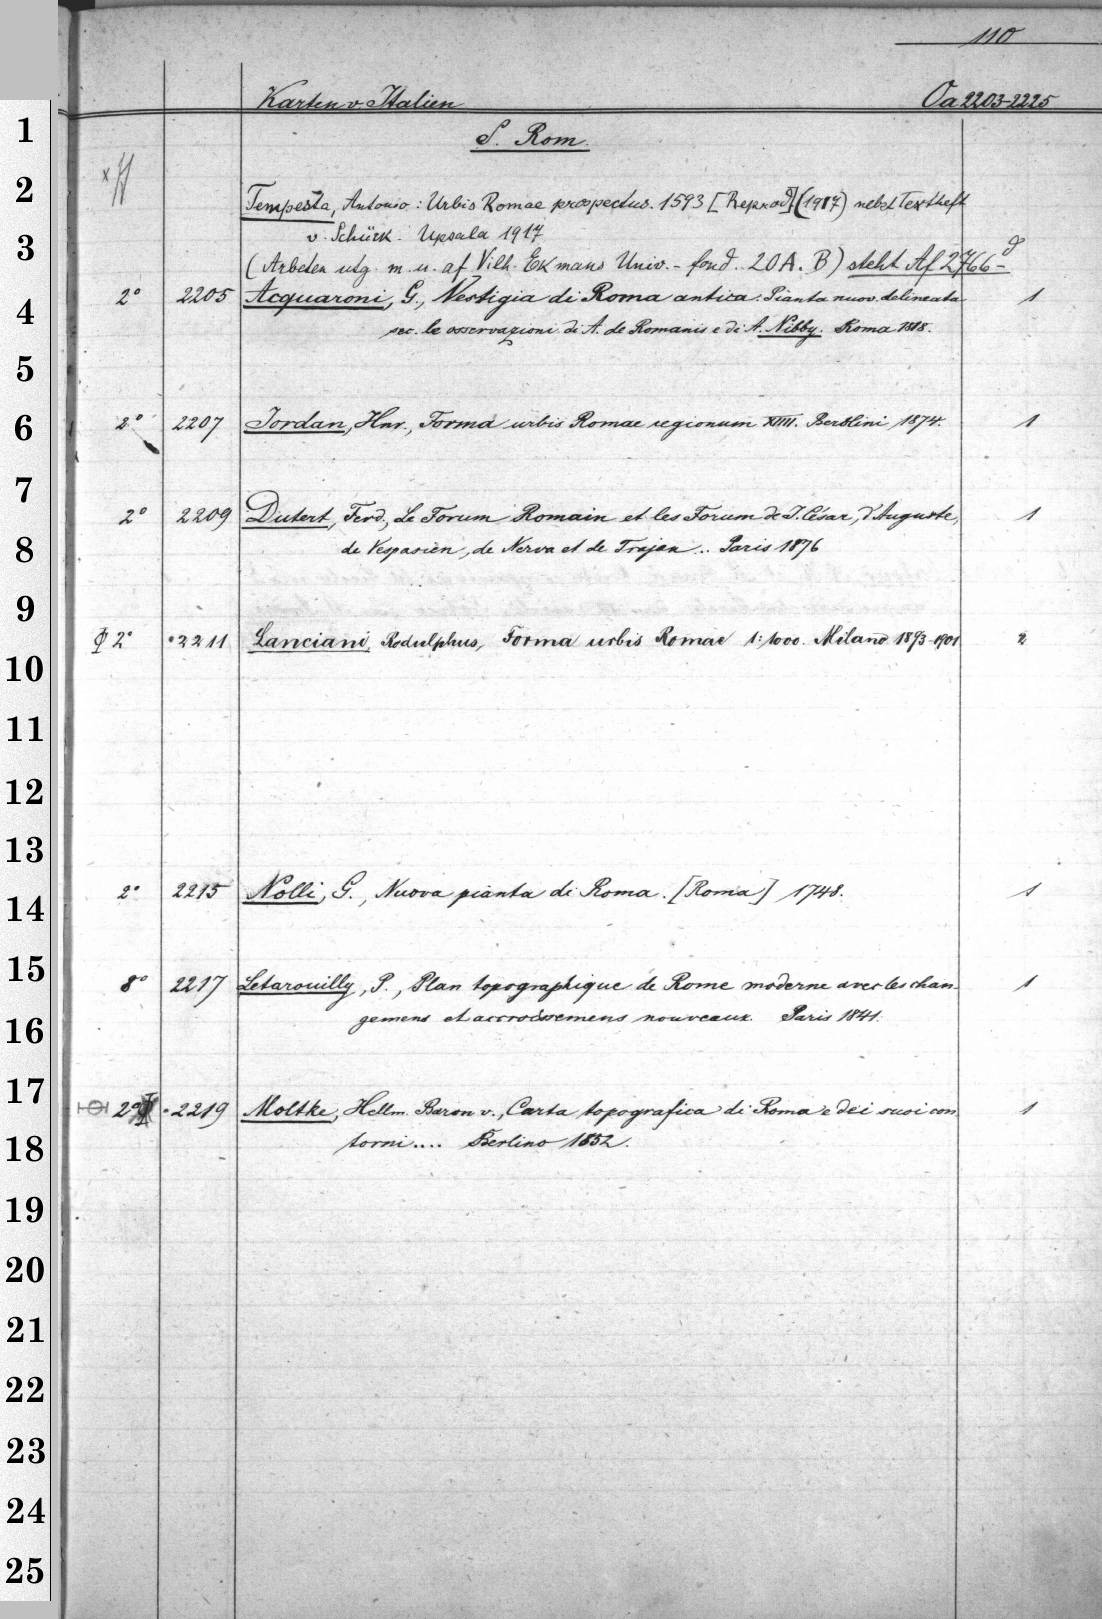 110
Karten v. Italien Oa 2203-2225
1
S. Rom.
2
Tempesta, Antonio: Urbis Romae prospectus. 1593 [Reprod] (1917) nebst Textheft
v. Schück. Upsala 1917
3
(Arbeten utg. m. u. af Vilh. Ekmans Univ.-fond. 20 A. B) steht Af 2766-
4
2° 2205 Acquaroni, G., Vestigia di Roma antica. Pianta nuov. delineata 1
sec. le osservazioni di A. de Romanis e di A. Nibby. Roma 1818.
5
6
2° 2207 Jordan, Hnr., Forma urbis Romae regionum XIIII. Berolini 1874. 1
7
2° 2209 Dutert, Ferd., Le Forum Romain et les Forum de J. César, d'Auguste, 1
8
de Vespasien, de Nerva et de Trajan .. Paris 1876
9
2° 2211 Lanciani, Rodulphus, Forma urbis Romae 1:1000. Milano 1893-1901 2
10
11
12
13
2° 2215 Nolli, G., Nuova pianta di Roma. [Roma] 1748. 1
14
15
8° 2217 Letarouilly, P., Plan topographique de Rome moderne avec les chan- 1
16
gemens et accroissemens nouveaux. Paris 1841.
17
2° 2219 Moltke, Hellm. Baron v., Carta topografica di Roma e dei suoi con 1
18
torni.... Berlino 1852.
19
20
21
22
23
24
25